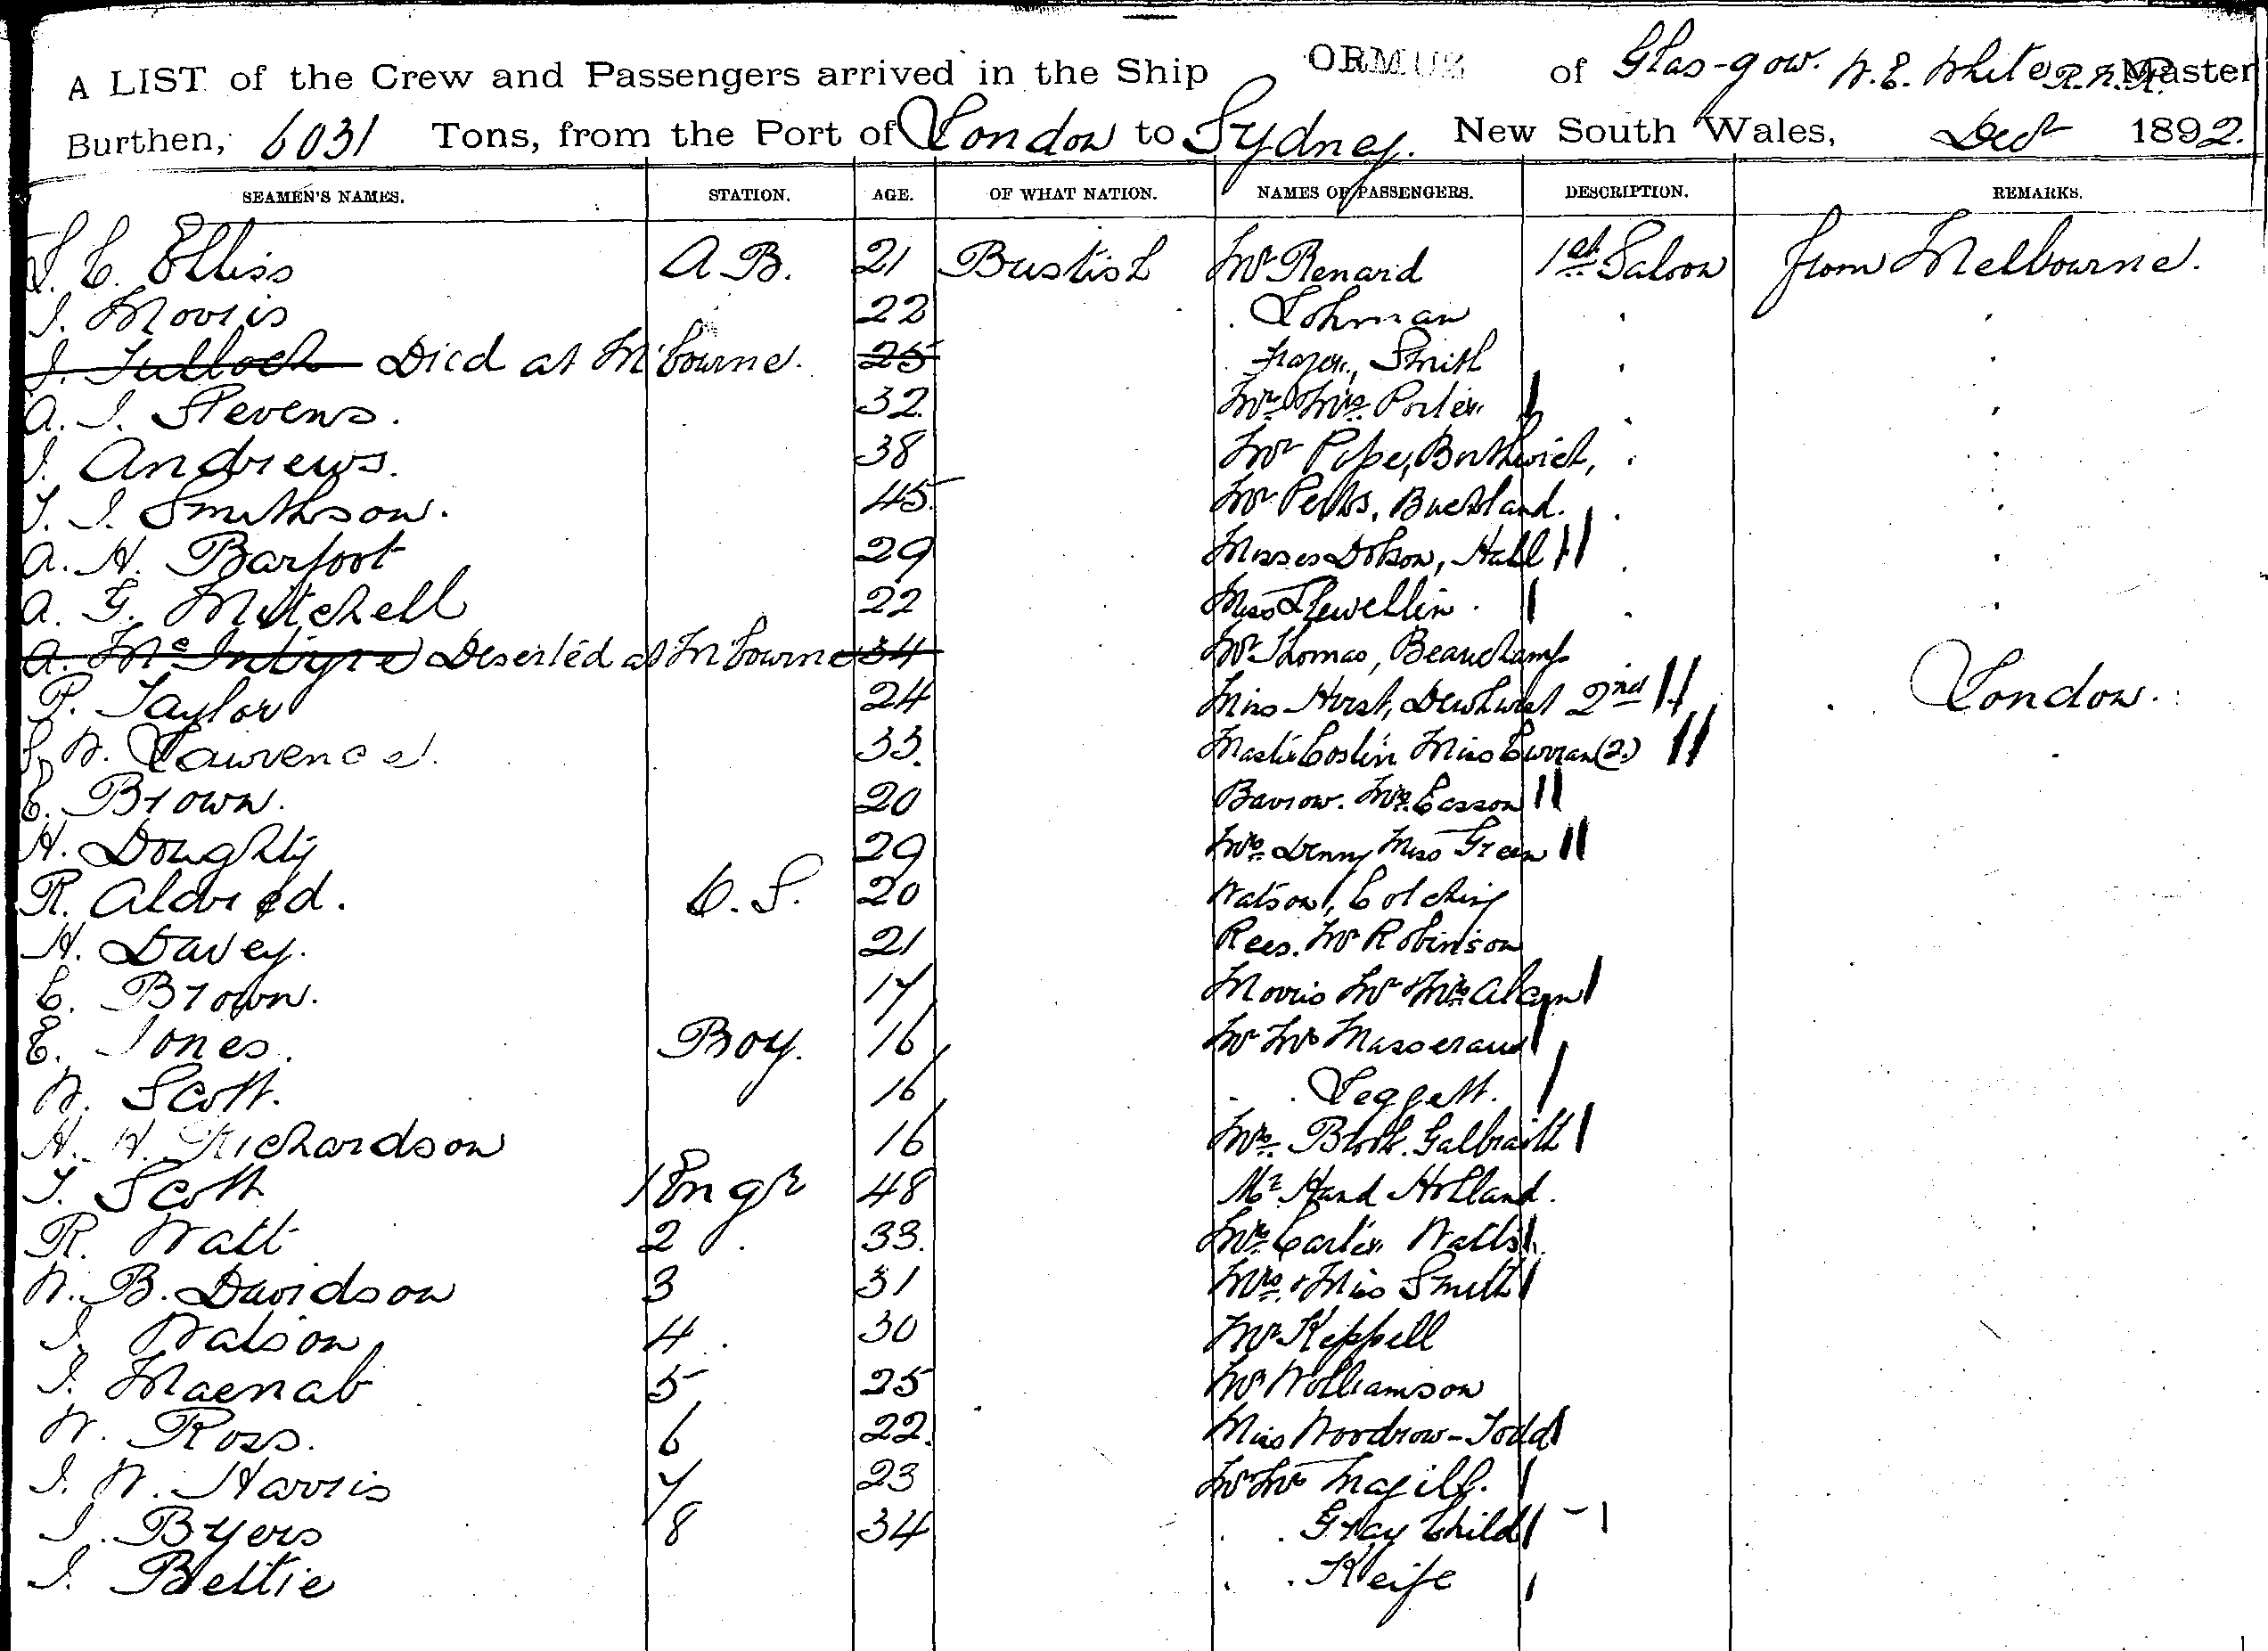 A LIST of the Crew and Passengers arrived in the Ship ORMUZ of Glas-gow. W. E. White R.N.R. Master
Burthen, 6031 Tons, from the Port of London to Sydney. New South Wales, Dec 1892.
SEAMEN'S NAMES. STATION. AGE. OF WHAT NATION. NAMES OF PASSENGERS. DESCRIPTION. REMARKS.
Elliss A B. 21 British Mr Renard 1st Saloon from Melbourne.
J. Morris 22 Lohman
J. Tulloch Died at M'bourne. 25 Frazer, Smith
A. J. Stevens. 32. Mr & Mrs Porter
J. Andrews. 38 Mr Pope, Borthwick,
T. J. Smithson. 45. Mr Perks, Buckland.
A. H. Barfoot 29 Misses Dobson, Hall
A. G. Mitchell 22 Miss Llewellin.
A. McIntyre Deserted at M'bourne 34 Mr Thomas, Beauchamp
P. Taylor 24 Miss Hurst, Dewhurst 2nd London.
W. Lawrence. 33. Master Coslin Miss Curran (2.)
C. Brown. 20 Barrow. Mrs. Casson
H. Doughty 29 Mrs Denny Miss Green
R. Aldred. O.S. 20 Watson, Colching
H. Davey. 21 Rees. Mr Robinson
C. Brown. 17 Morris Mr & Mrs
E. Jones. Boy. 16 Mr Mrs
W. Scott. 16 Leggett.
H. H. Richardson 16 Mrs Galbraith
T. Scott 1 Engr 48 Mr Hand Holland.
R. Watt 2 33. Mrs Carter Watts
W. B. Davidson 3 31 Mrs. & Miss Smith
J. Watson 4 30 Mr Keppell
J. Macnab 5 25 Mr Williamson
W. Ross. 6 22. Miss Woodrow-Todd
J. W. Harris 7 23 Mr Mrs Magill.
J. Byers 8 34 Gray Child
J. Bettie Keife